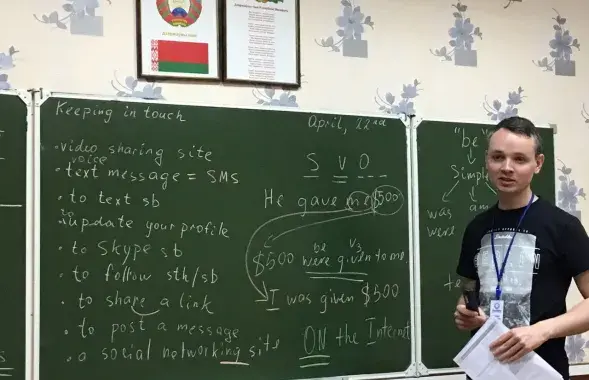 Keeping in touch
April, 22nd
• video sharing site
voice
• text message = SMS
• to text sb
to
• update your profile
• to Skype sb
• to follow sth/sb
• to share a link
• to post a message
• a social networking site
S V O
He gave me $500
be V3
$500 were given to me.
I was given $500
ON the Internet
"be"
Simple
was am
were